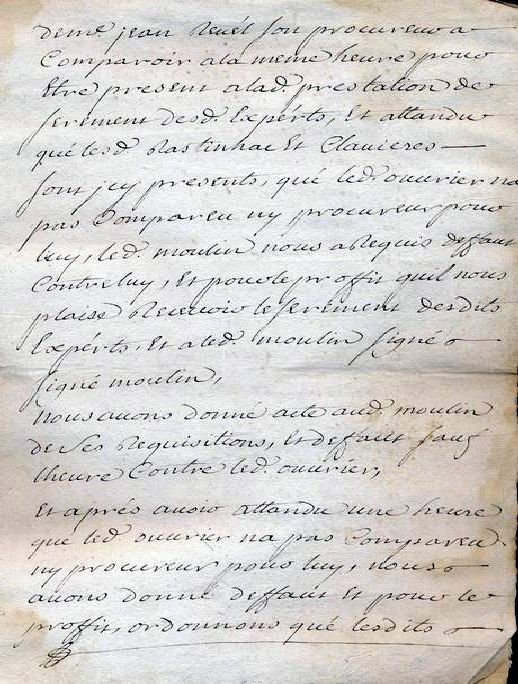 deme jean Revel son procureur a
Comparoir a la meme heure pour
Etre present a lad. prestation de
serement desd. Experts, Et attandu
qué lesd. Rastinhac Et Clavieres
sont jcy presents, qué led. ouurier na
pas Compareu ny procureur pour
luy, led. moulin nous a Requis deffaut
Contre luy, Et pour le proffit quil nous
plaise Recevoir le serement desdits
Experts, Et a led. moulin signé
signé moulin,
Nous auons donné acte aud. moulin
de ses Requisitions, Et deffault sauf
lheure Contre led. ouurier,
Et aprés auoir attandu une heure
que led. ouurier na pas Compareu
ny procureur pour luy, nous
auons donné deffaut Et pour le
proffit, ordonnons qué lesdits